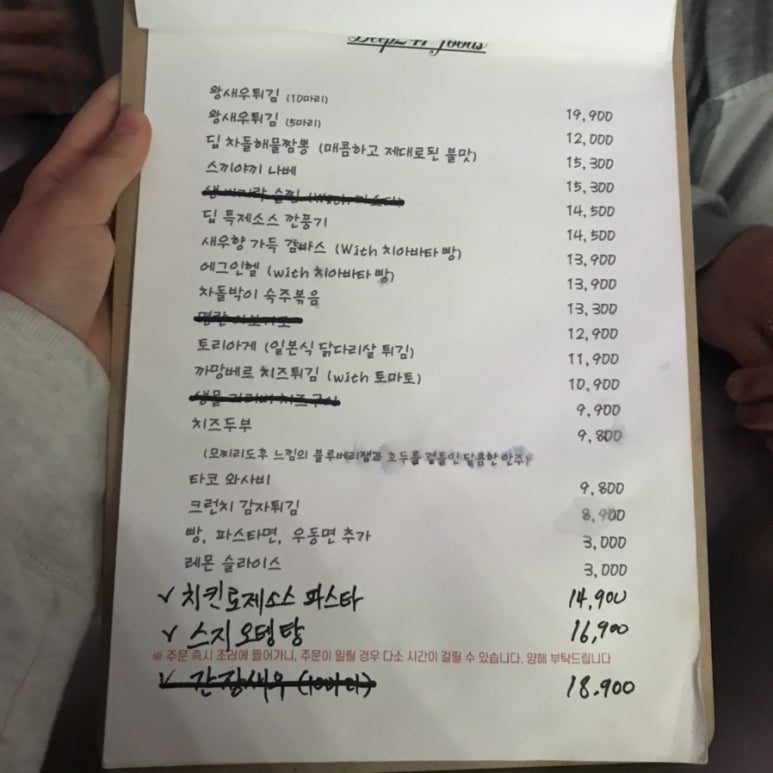 Foods
왕새우튀김 (10마리) 19,900
왕새우튀김 (5마리) 12,000
딥 차돌해물짬뽕 (매콤하고 제대로된 불맛) 15,300
스끼야끼 나베 15,300
14,500
딥 특제소스 깐풍기 14,500
새우향 가득 감바스 (With 치아바타 빵) 13,900
에그인헬 (with 치아바타 빵) 13,900
차돌박이 숙주볶음 13,300
12,900
토리아게 (일본식 닭다리살 튀김) 11,900
까망베르 치즈튀김 (with 토마토) 10,900
9,900
치즈두부 9,800
(모찌리도후 느낌의 블루베리잼과 호두를 곁들인 달콤한 안주)
타코 와사비 9,800
크런치 감자튀김 8,900
빵, 파스타면, 우동면 추가 3,000
레몬 슬라이스 3,000
✓ 치킨로제소스 파스타 14,900
✓ 스지오뎅탕 16,900
※ 주문 즉시 조리에 들어가니, 주문이 밀릴 경우 다소 시간이 걸릴 수 있습니다. 양해 부탁드립니다
✓ 간장새우 (10마리) 18.900